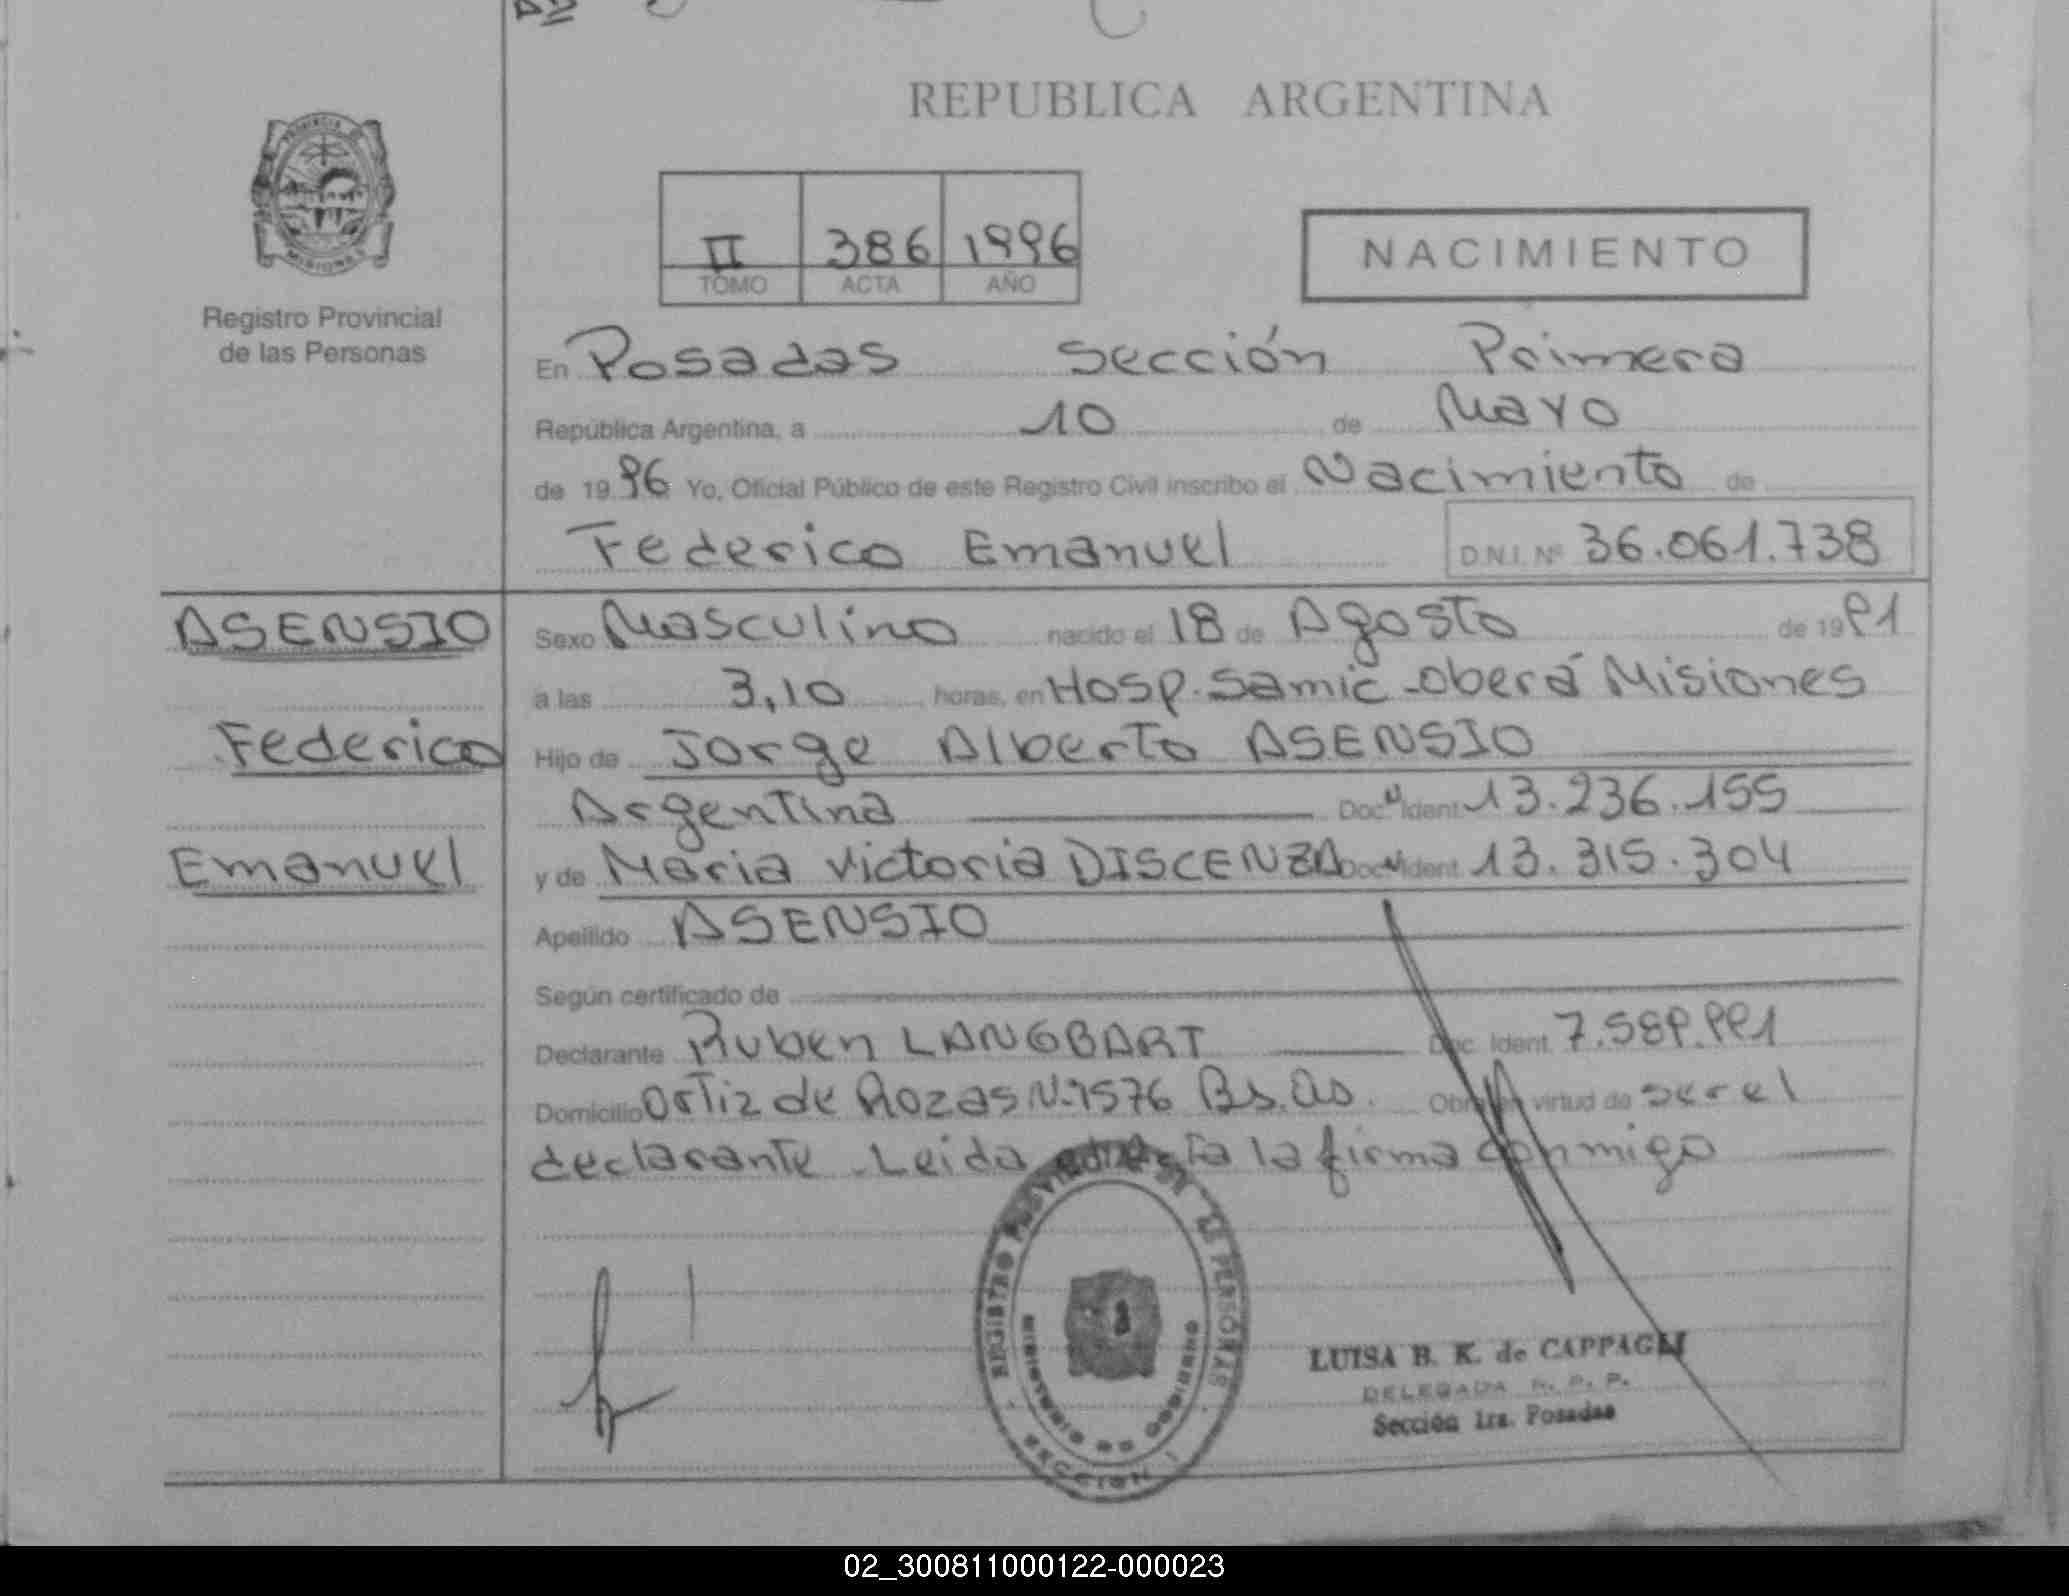 REPUBLICA ARGENTINA
PROVINCIA DE
MISIONES
Registro Provincial
de las Personas
II 386 1996
TOMO ACTA AÑO
NACIMIENTO
En Posadas Sección Primera
República Argentina, a 10 de Mayo
de 1996 Yo, Oficial Público de este Registro Civil inscribo el Nacimiento de
Federico Emanuel D.N.I. Nº 36.061.738
ASENSIO
Federico
Emanuel
Sexo Masculino nacido el 18 de Agosto de 1991
a las 3,10 horas, en Hosp. Samic - Oberá Misiones
Hijo de Jorge Alberto ASENSIO
Argentina Doc. Ident. 13.236.155
y de Maria Victoria DISCENZA Doc. Ident. 13.315.304
Apellido ASENSIO
Según certificado de
Declarante Ruben LANGBART Doc. Ident. 7.589.991
Domicilio Ortiz de Rozas N-1576 Bs. As. Obra en virtud de ser el
declarante - Leida el Acta la firma conmigo
REGISTRO PROVINCIAL DE LAS PERSONAS
MINISTERIO DE GOBIERNO
SECCION 1
LUISA B. K. de CAPPAGLI
DELEGADA R. P. P.
Sección 1ra. Posadas
02_300811000122-000023